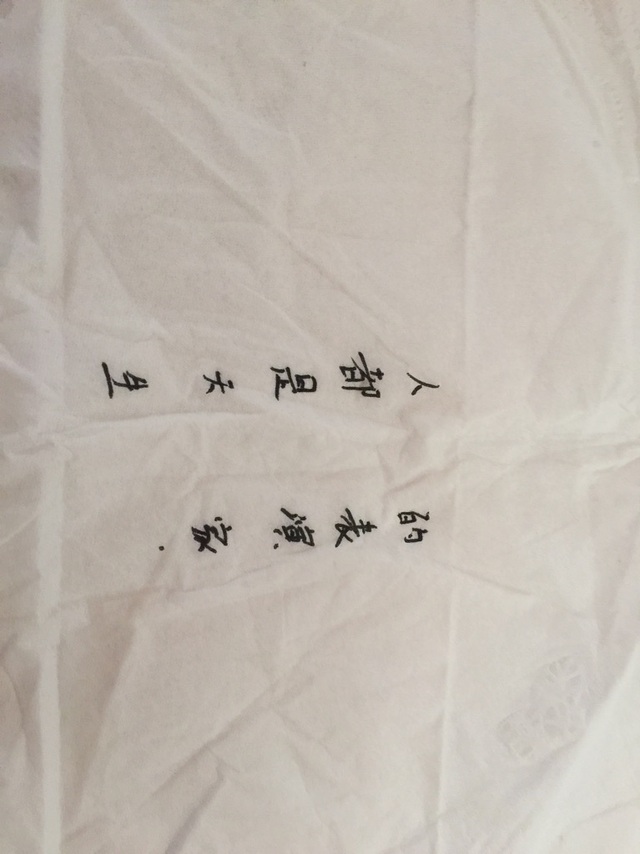 人都是天生
的表演家.